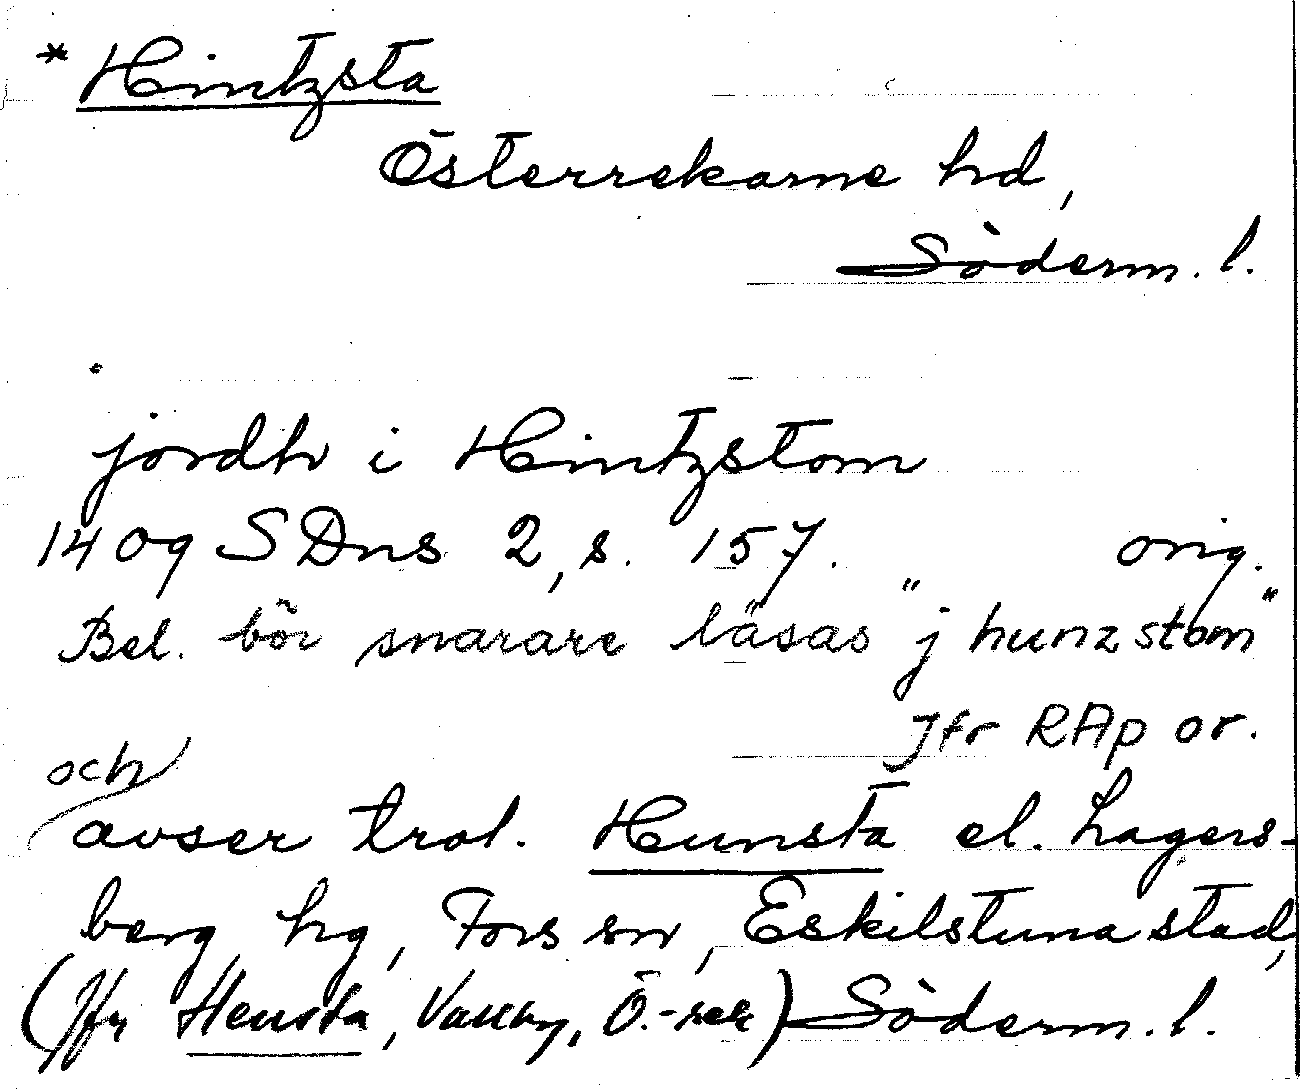 * Hintzsta
Österrekarne hd,
Söderm. l.
jordh i Hintzstom
1409 SDns 2, s. 157. orig.
Bel. bör snarare läsas "j hunzstom"
Jfr RAp or.
och
avser trol. Hunsta el. Lagers-
berg hg, Fors sn, Eskilstuna stad,
(Jfr Hensta, Vallby, Ö.-rek) Söderm. l.